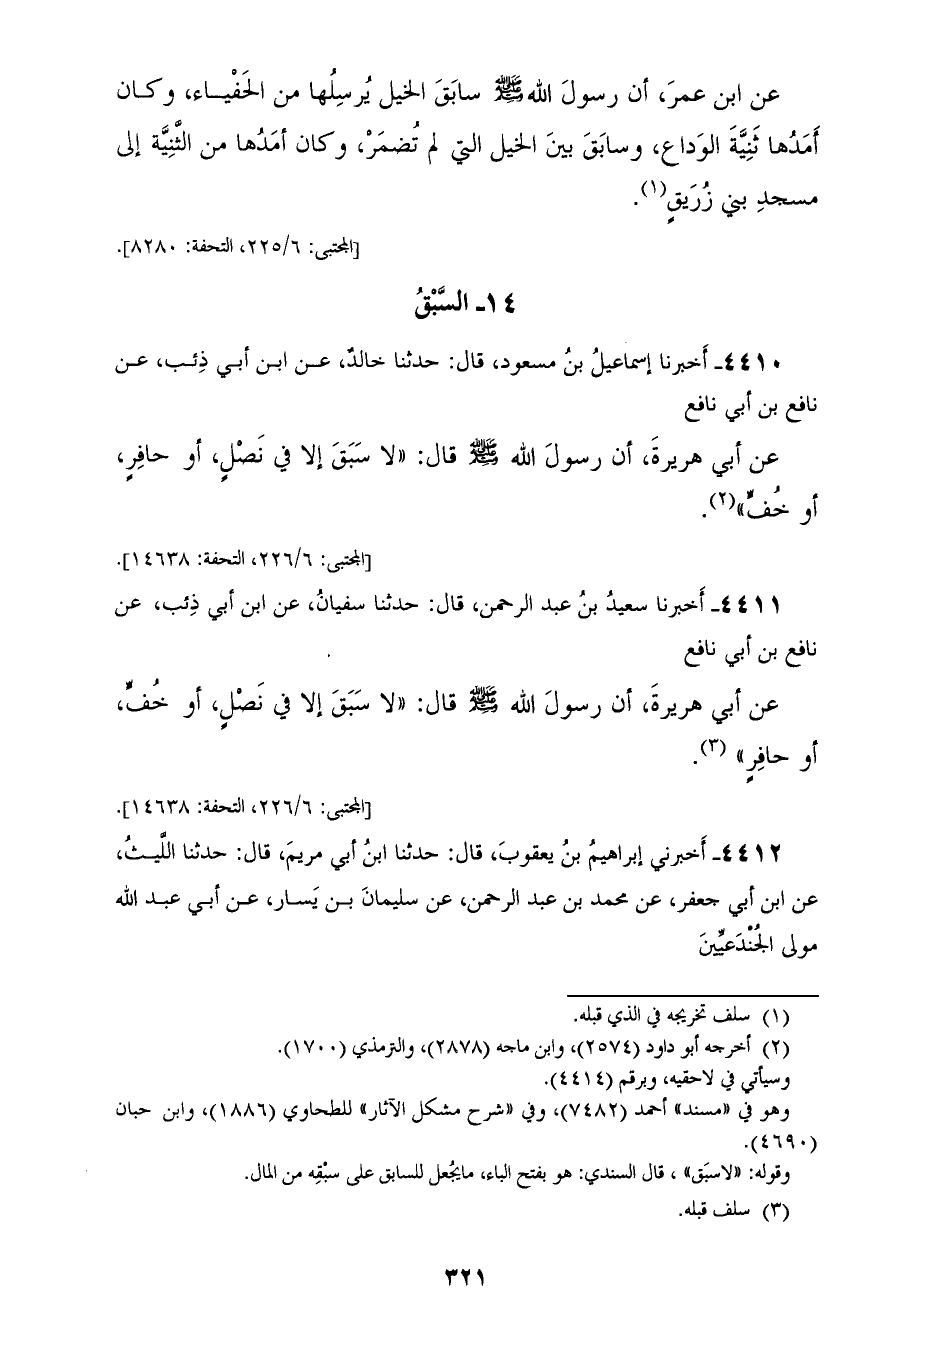 عن ابن عمرَ، أن رسولَ الله ﷺ سابَقَ الخيل يُرسِلُها من الحَفْيـاء، وكـان
أَمَدُها ثَنِيَّةَ الوَداع، وسابَقَ بينَ الخيل التي لم تُضمَرْ، وكان أمَدُها من الثَّنِيَّة إلى
مسجدِ بني زُرَيقٍ(١).
[المجتبى: ٢٢٥/٦، التحفة: ٨٢٨٠].
١٤- السَّبْقُ
٤٤١٠- أَخبرنا إسماعيلُ بنُ مسعود، قال: حدثنا خالدٌ، عـن ابـن أبـي ذِئـب، عـن
نافع بن أبي نافع
عن أبي هريرةَ، أن رسولَ الله ﷺ قال: «لا سَبَقَ إلا في نَصْلٍ، أو حافِرٍ،
أو خُفٍّ»(٢).
[المجتبى: ٢٢٦/٦، التحفة: ١٤٦٣٨].
٤٤١١- أَخبرنا سعيدُ بنُ عبد الرحمن، قال: حدثنا سفيانُ، عن ابن أبي ذِئب، عن
نافع بن أبي نافع
عن أبي هريرةَ، أن رسولَ الله ﷺ قال: «لا سَبَقَ إلا في نَصْلٍ، أو خُفٍّ،
أو حافِرٍ» (٣).
[المجتبى: ٢٢٦/٦، التحفة: ١٤٦٣٨].
٤٤١٢- أَخبرني إبراهيمُ بنُ يعقوبَ، قال: حدثنا ابنُ أبي مريمَ، قال: حدثنا اللَّيـثُ،
عن ابن أبي جعفر، عن محمد بن عبد الرحمن، عن سليمانَ بـن يَسـار، عـن أبـي عبـد الله
مولى الجُنْدَعيِّينَ
(١) سلف تخريجه في الذي قبله.
(٢) أخرجه أبو داود (٢٥٧٤)، وابن ماجه (٢٨٧٨)، والترمذي (١٧٠٠).
وسيأتي في لاحقيه، وبرقم (٤٤١٤).
وهو في «مسند» أحمد (٧٤٨٢)، وفي «شرح مشكل الآثار» للطحاوي (١٨٨٦)، وابن حبان
(٤٦٩٠).
وقوله: «لاسبَق» ، قال السندي: هو بفتح الباء، مايُجعل للسابق على سبْقِه من المال.
(٣) سلف قبله.
٣٢١